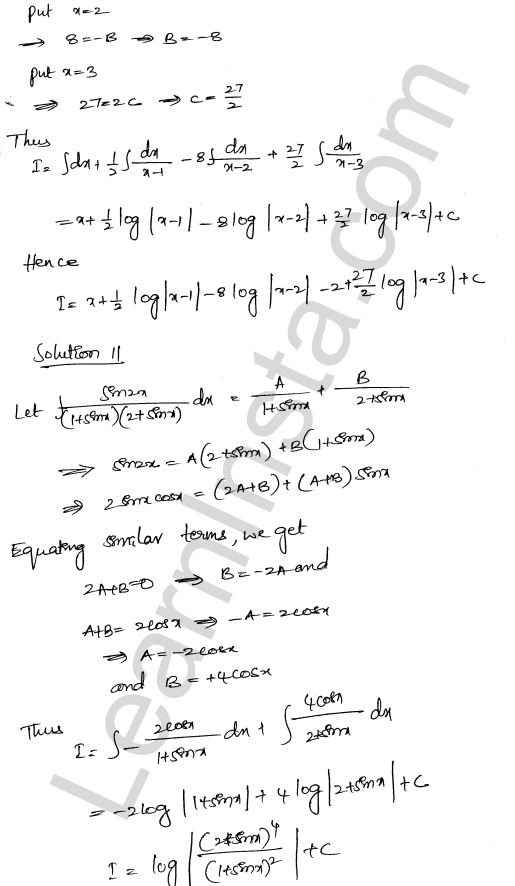 put x=2
→ 8=-B ⇒ B=-8
put x=3
⇒ 27=2C → C=27/2
Thus
I= ∫dx+ 1/2 ∫dx/x-1 -8∫ dx/x-2 + 27/2 ∫dx/x-3
=x+ 1/2 log |x-1| -8log |x-2| + 27/2 log|x-3|+c
Hence
I= x+1/2 log|x-1|-8log |x-2| -2+27/2 log|x-3|+c
Solution 11
Let ∫ Sin2x/(1+sinx)(2+sinx) dx = A/1+sinx + B/2+sinx
⇒ Sin2x = A(2+sinx) +B(1+sinx)
⇒ 2sinx cosx = (2A+B) + (A+B) sinx
Equating similar terms, we get
2A+B=0 ⇒ B=-2A and
A+B= 2cosx ⇒ -A=2cosx
⇒ A=-2cosx
and B=+4cosx
Thus
I= ∫- 2cosx/1+sinx dx + ∫ 4cosx/2+sinx dx
= -2log |1+sinx| + 4log|2+sinx| +C
I = log |(2+sinx)^4/(1+sinx)^2| +C
LearnInsta.com